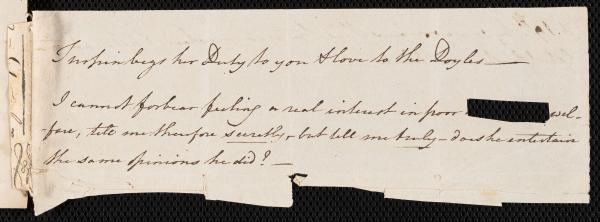 Turpin begs her Duty to you & love to the Doyles —
I cannot forbear feeling a real interest in poor wel-
-fare, tell me therefore secretly, but tell me truly – does he entertain
the same opinions he did? —